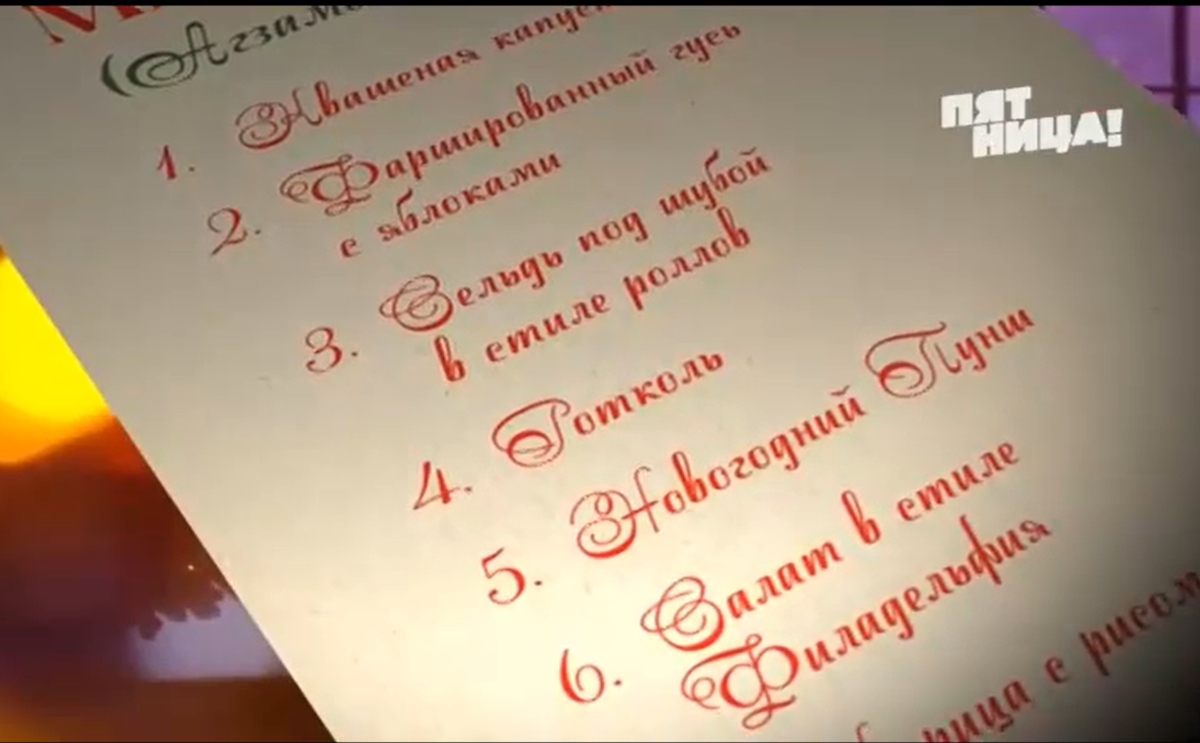 (Агзамо
1. Квашеная капус
2. Фаршированный гусь
с яблоками
3. Сельдь под шубой
в стиле роллов
4. Ротколь
5. Новогодний Пунш
6. Салат в стиле
Филадельфия
рица с рисом
ПЯТ
НИЦА!